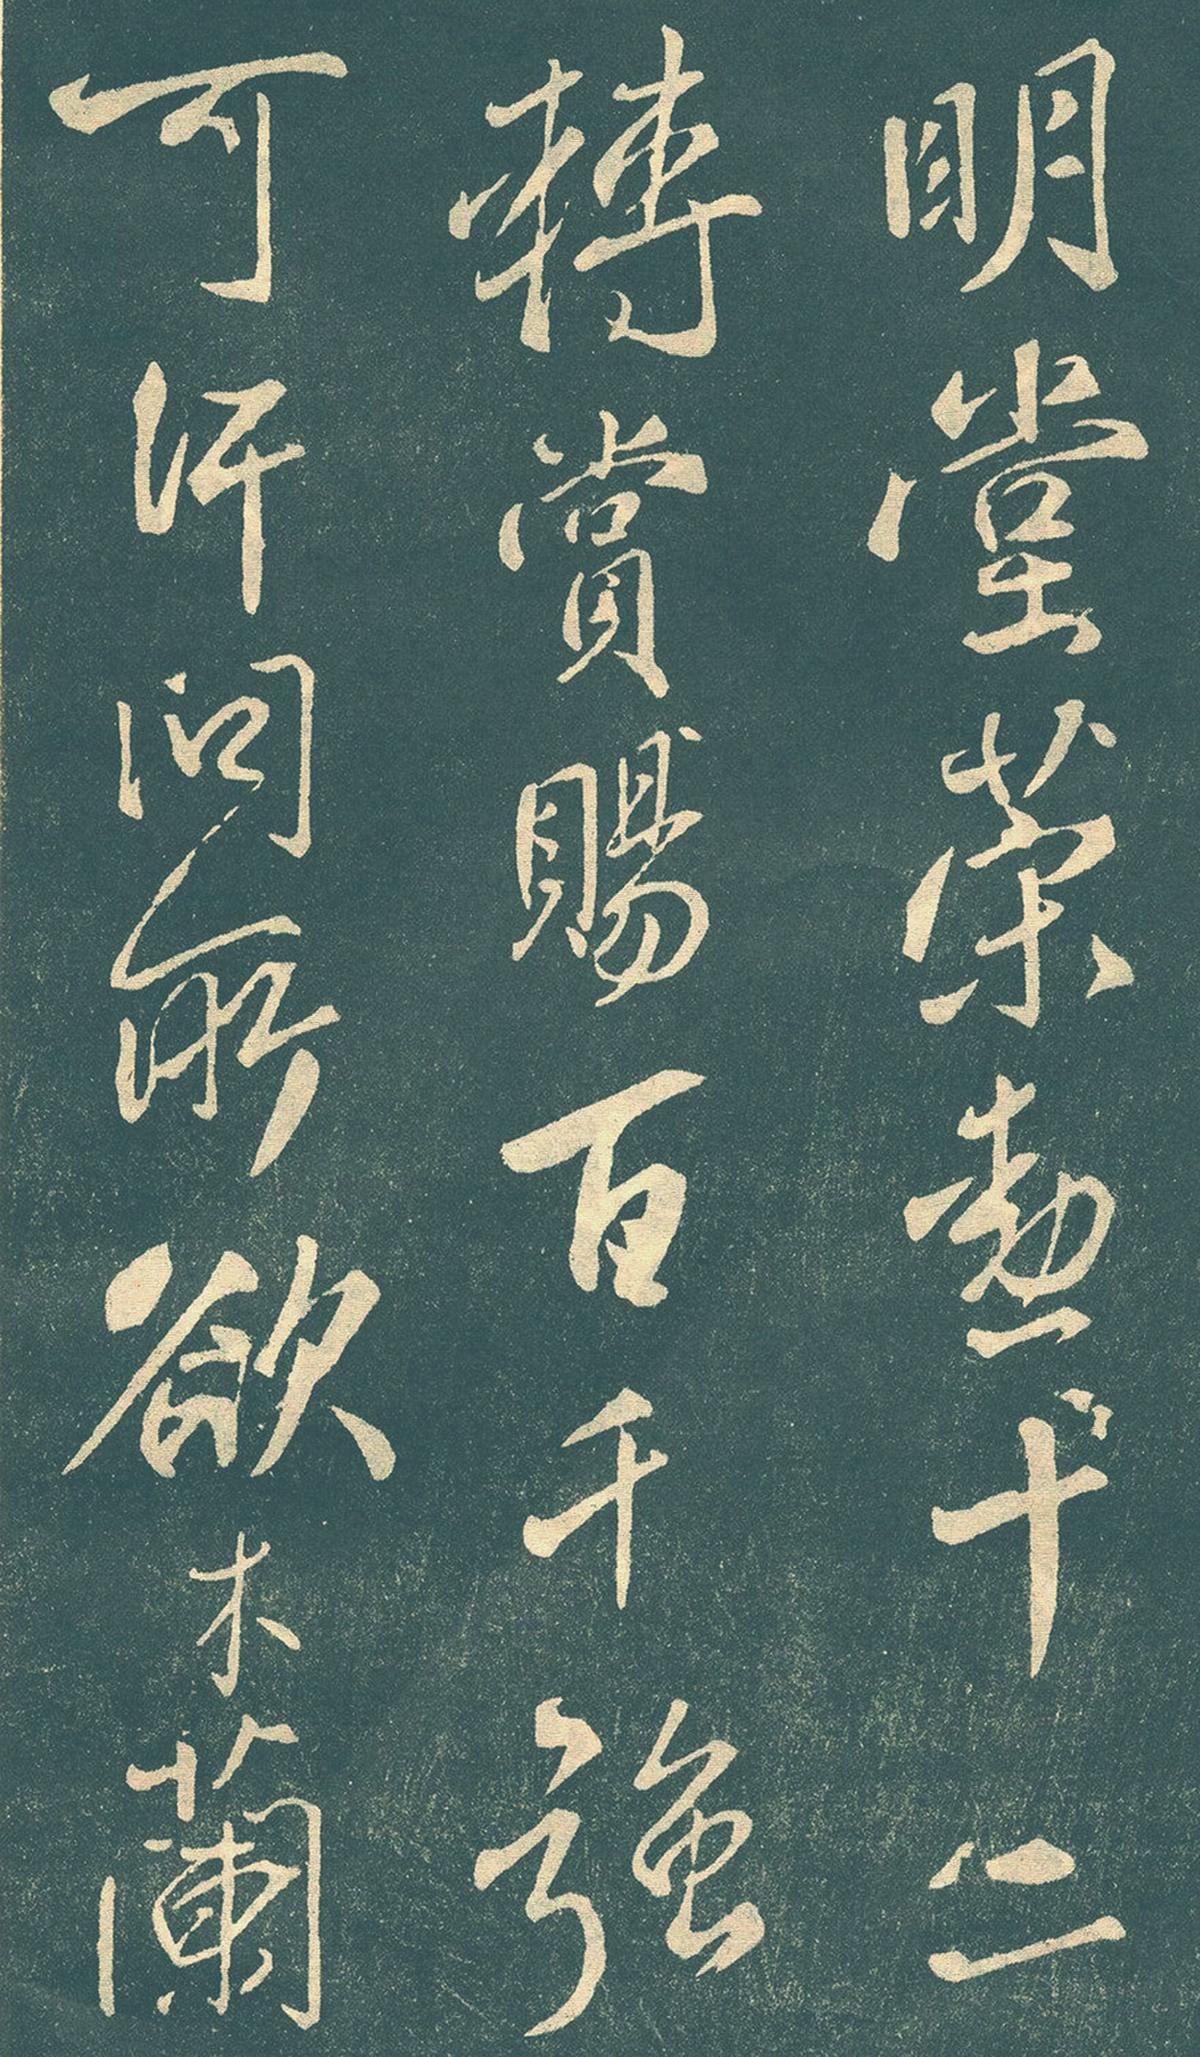 明堂策勲十二
轉賞賜百千強
可汗問所欲木蘭